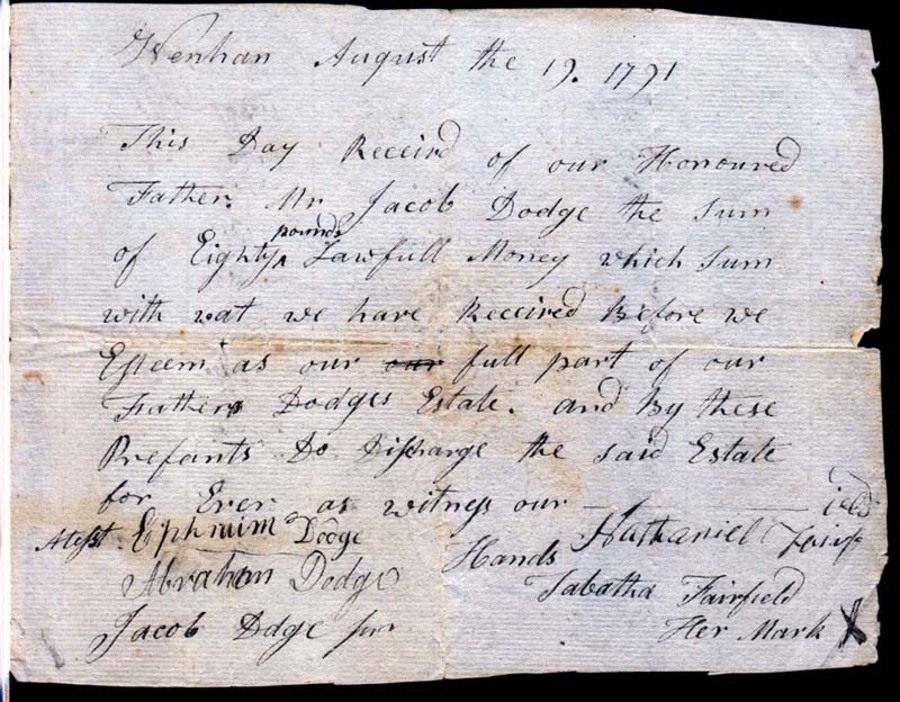 Wenham August the 19. 1791
This Day Receivd of our Honoured
Father Mr Jacob Dodge the Sum
pounds
of Eighty ^ Lawfull Money which Sum
with wat we have Received Before we
Esteem as our our full part of our
Fathers Dodges Estate. and By these
Presants Do Discharge the said Estate
for Ever as witness our
Hands Nathaniel Fairf
ield
Tabatha Fairfield
Her Mark X
Atest Ephraim Dodge
Abraham Dodge
Jacob Ddge jun